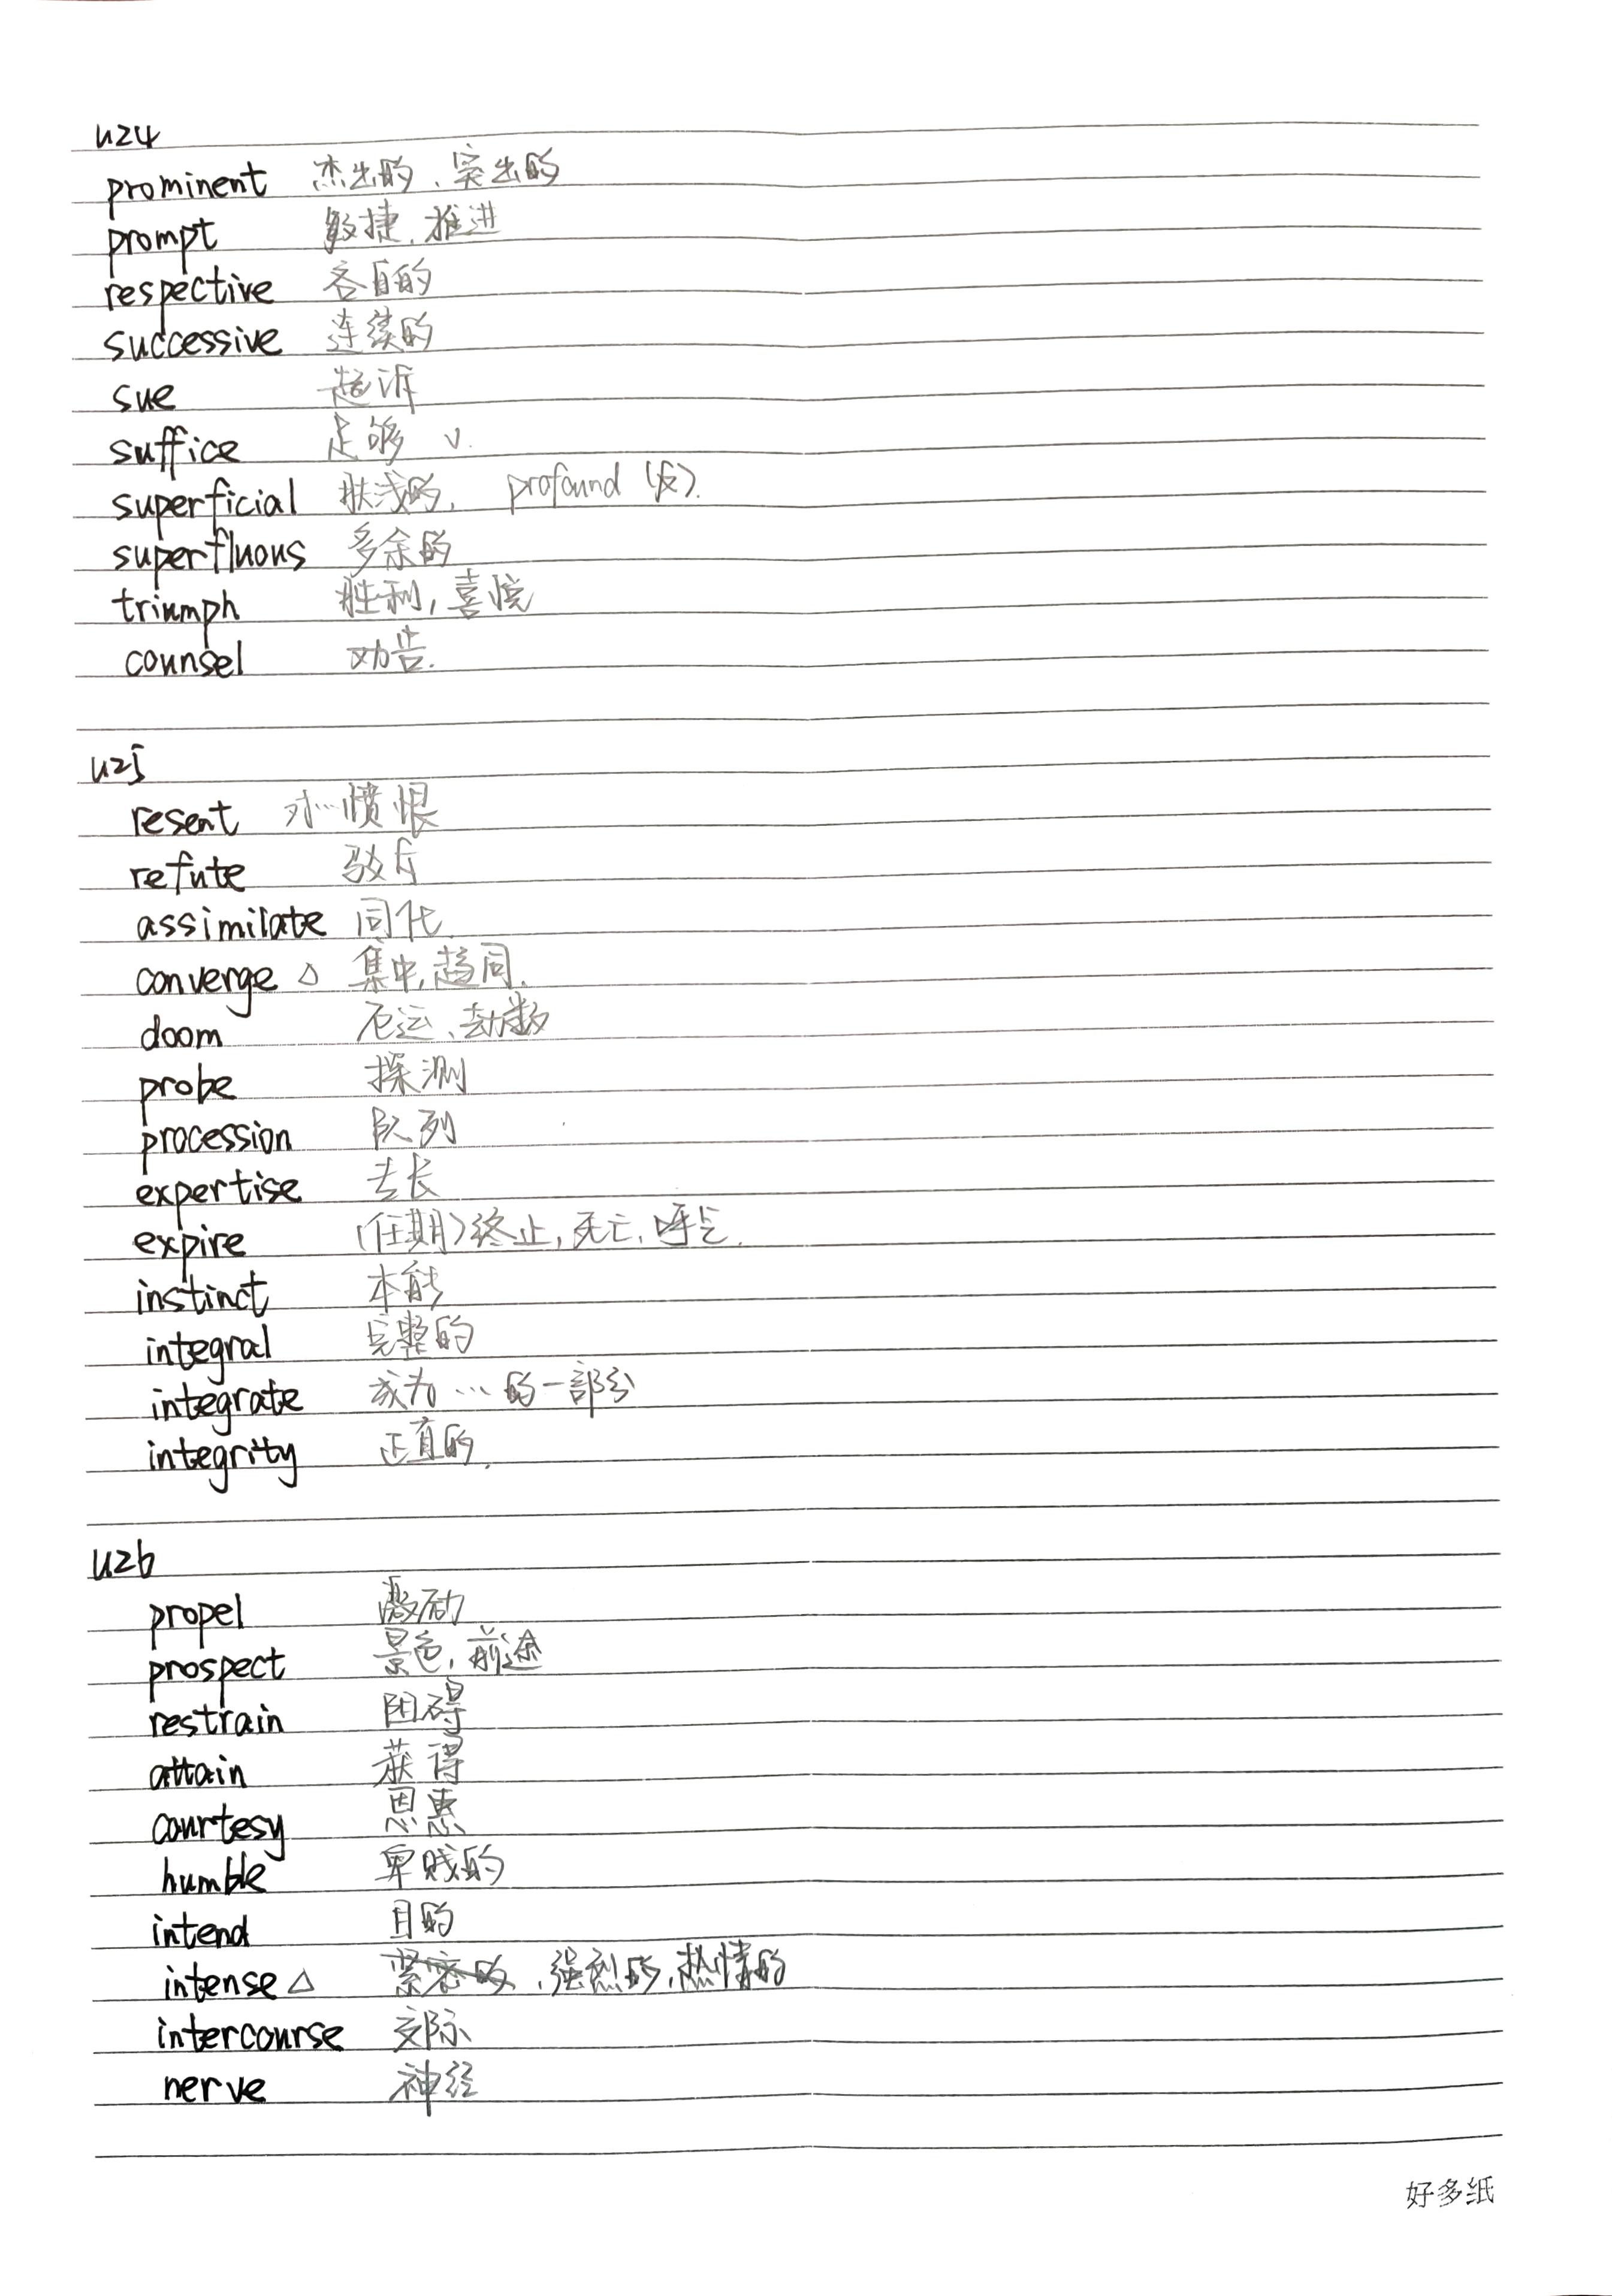 u24
prominent 杰出的、突出的
prompt 敏捷,推进
respective 各自的
successive 连续的
sue 起诉
suffice 足够 v.
superficial 肤浅的, profound (反).
superfluous 多余的
triumph 胜利,喜悦
counsel 劝告.
u25
resent 对…愤恨
refute 驳斥
assimilate 同化.
converge △ 集中,趋同.
doom 厄运、劫数
probe 探测
procession 队列
expertise 专长
expire (任期)终止,死亡,呼气.
instinct 本能
integral 完整的
integrate 成为…的一部分
integrity 正直的.
u26
propel 激励
prospect 景色,前途
restrain 阻碍
attain 获得
courtesy 恩惠
humble 卑贱的
intend 目的
intense △ 紧密的,强烈的,热情的
intercourse 交际
nerve 神经
好多纸